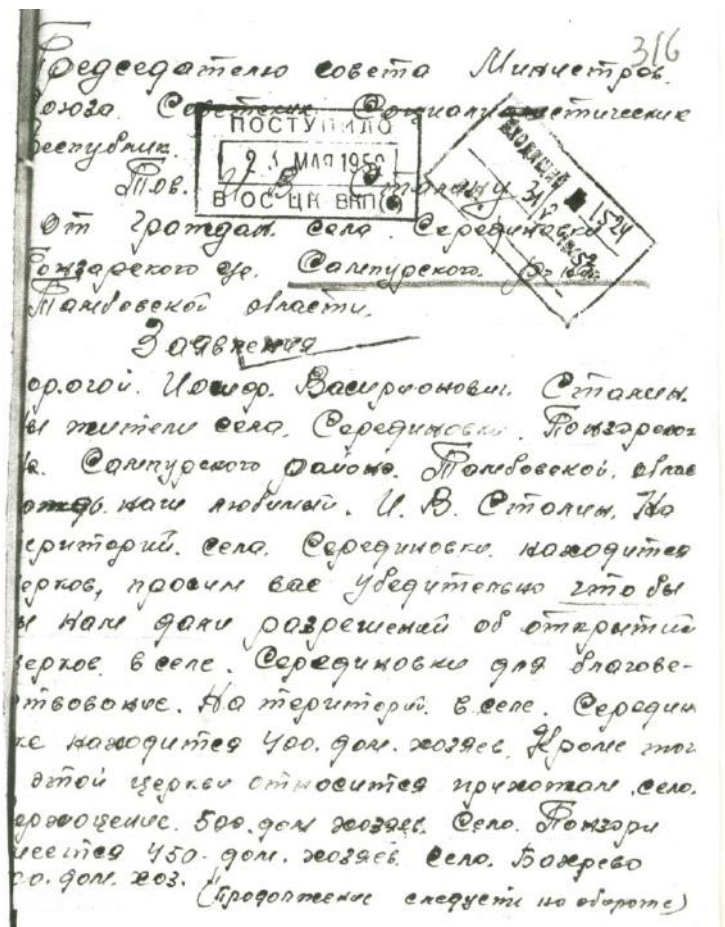 316
Председателю совета Министров.
оюза. Советских Социалистических
Республик.
ПОСТУПИЛО
21 МАЯ 195
В ОС ЦК ВКП(б)
Тов. И В Сталину
ВХОДЯЩИЙ № 1524
От граждан. села. Серединовки
Понзарского с/с. Сампурского. р-
Тамбовской области.
Заявления
орогой. Иосиф. Васирионович. Сталин.
ы жители села. Серединовки. Понзарског
. Сампурского района. Тамбовской. облас
наш любимый. И. В. Сталин. На
ериторий. села. Серединовки. находится
ерков, просим вас убедительно что бы
ы нам дали разрешений об открытии
церков. в селе. Серединовки для благове-
ствование. На територий. в селе. Середин
ке находится 400. дом. хозяев. Кроме тог
этой церкви относится прихотам. село.
500. дом хозяев. Село. Понзари
меется 450. дом. хозяев. село. Бахрево
00. дом. хоз.
(Продолжение следуети на обороте)